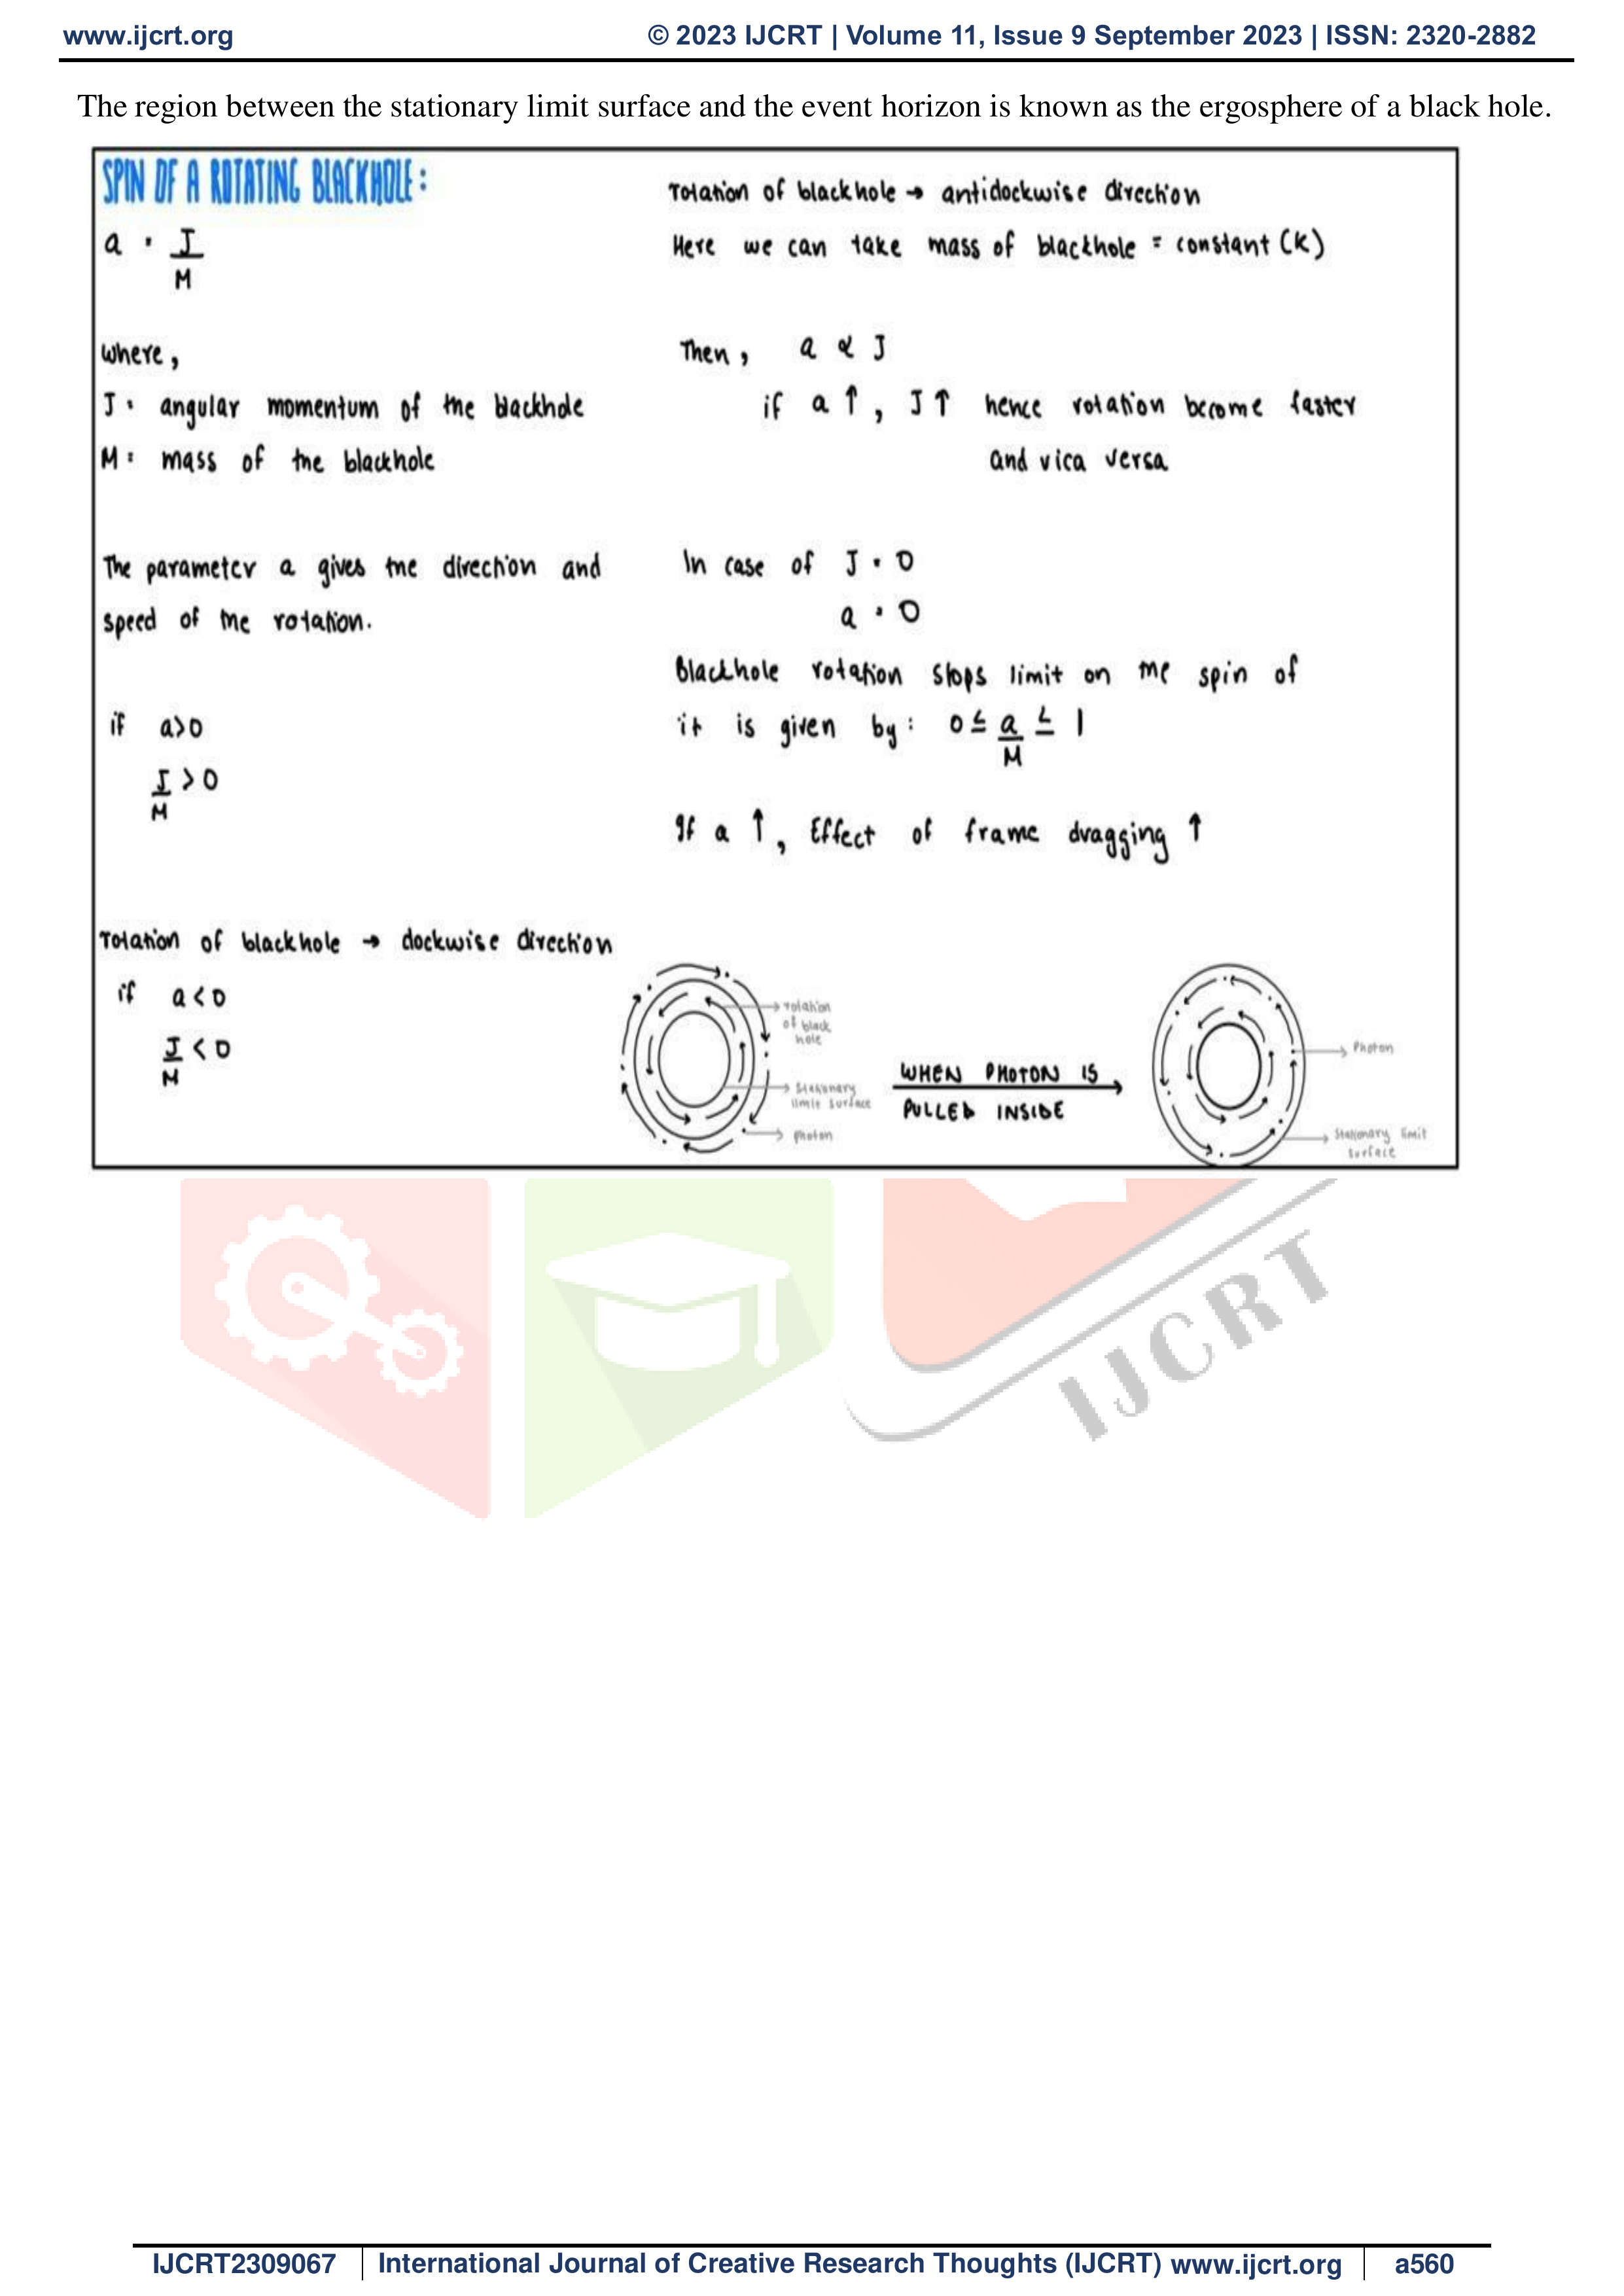 www.ijcrt.org © 2023 IJCRT | Volume 11, Issue 9 September 2023 | ISSN: 2320-2882
The region between the stationary limit surface and the event horizon is known as the ergosphere of a black hole.
SPIN OF A ROTATING BLACKHOLE:
a = J
M
where,
J = angular momentum of the blackhole
M = mass of the blackhole
The parameter a gives the direction and
speed of the rotation.
if a>0
J > 0
M
rotation of blackhole → clockwise direction
if a < 0
J < 0
M
rotation of blackhole → anticlockwise direction
Here we can take mass of blackhole = constant (K)
Then, a ∝ J
if a ↑, J ↑ hence rotation become faster
and vica versa
In case of J = 0
a = 0
Blackhole rotation stops limit on the spin of
it is given by: 0 ≤ a ≤ 1
M
If a ↑, Effect of frame dragging ↑
rotation
of black
hole
Stationary
limit surface
photon
WHEN PHOTON IS
PULLED INSIDE
Photon
Stationary limit
surface
IJCRT
IJCRT2309067 International Journal of Creative Research Thoughts (IJCRT) www.ijcrt.org a560